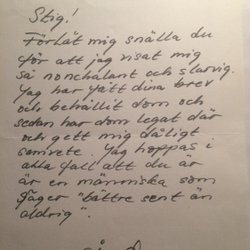 Stig!
Förlåt mig snälla du
för att jag visat mig
så nonchalant och slarvig.
Jag har fått dina brev
och behållit dom och
sedan har dom legat där
och gett mig dåligt
samvete. Jag hoppas i
alla fall att du är
är en människa som
säger "bättre sent än
aldrig".